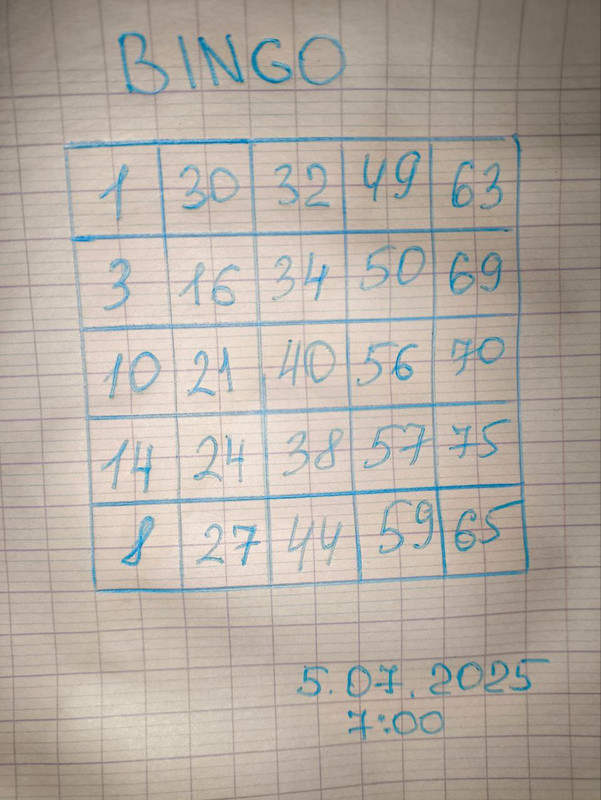 BINGO
1 30 32 49 63
3 16 34 50 69
10 21 40 56 70
14 24 38 57 75
8 27 44 59 65
5.07.2025
7:00